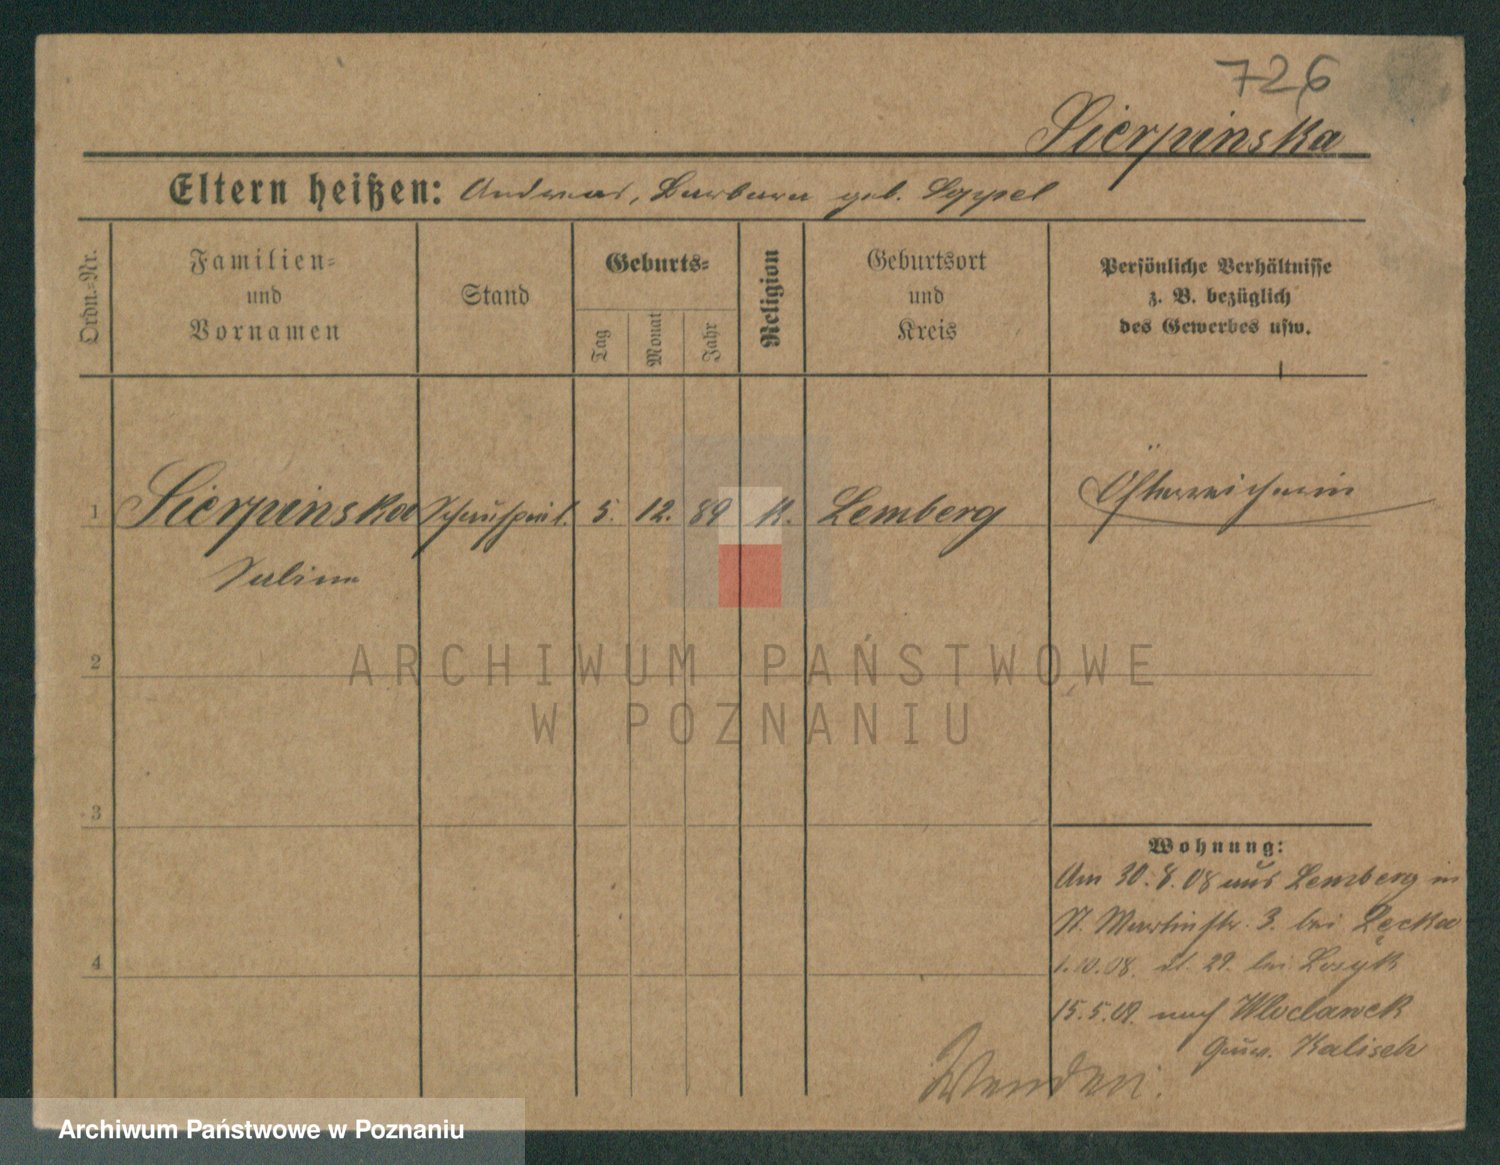 726
Sierpinska
Eltern heißen: Andreas, Barbara geb. Seppel
Ordn.-Nr.
Familien-
und
Vornamen
Stand
Geburts-
Tag
Monat
Jahr
Religion
Geburtsort
und
Kreis
Persönliche Verhältnisse
z. B. bezüglich
des Gewerbes usw.
1 Sierpinska Schauspiel. 5. 12. 89 K. Lemberg Österreicherin
Sabina
2
3
4
Wohnung:
Am 30.8.08 aus Lemberg in
St. Martinstr. 3. bei Łęcka
1.10.08. dt. 29. bei
15.5.09. nach Wloclawek
Gouv. Kalisch
Wenden.
ARCHIWUM PAŃSTWOWE
W POZNANIU
Archiwum Państwowe w Poznaniu